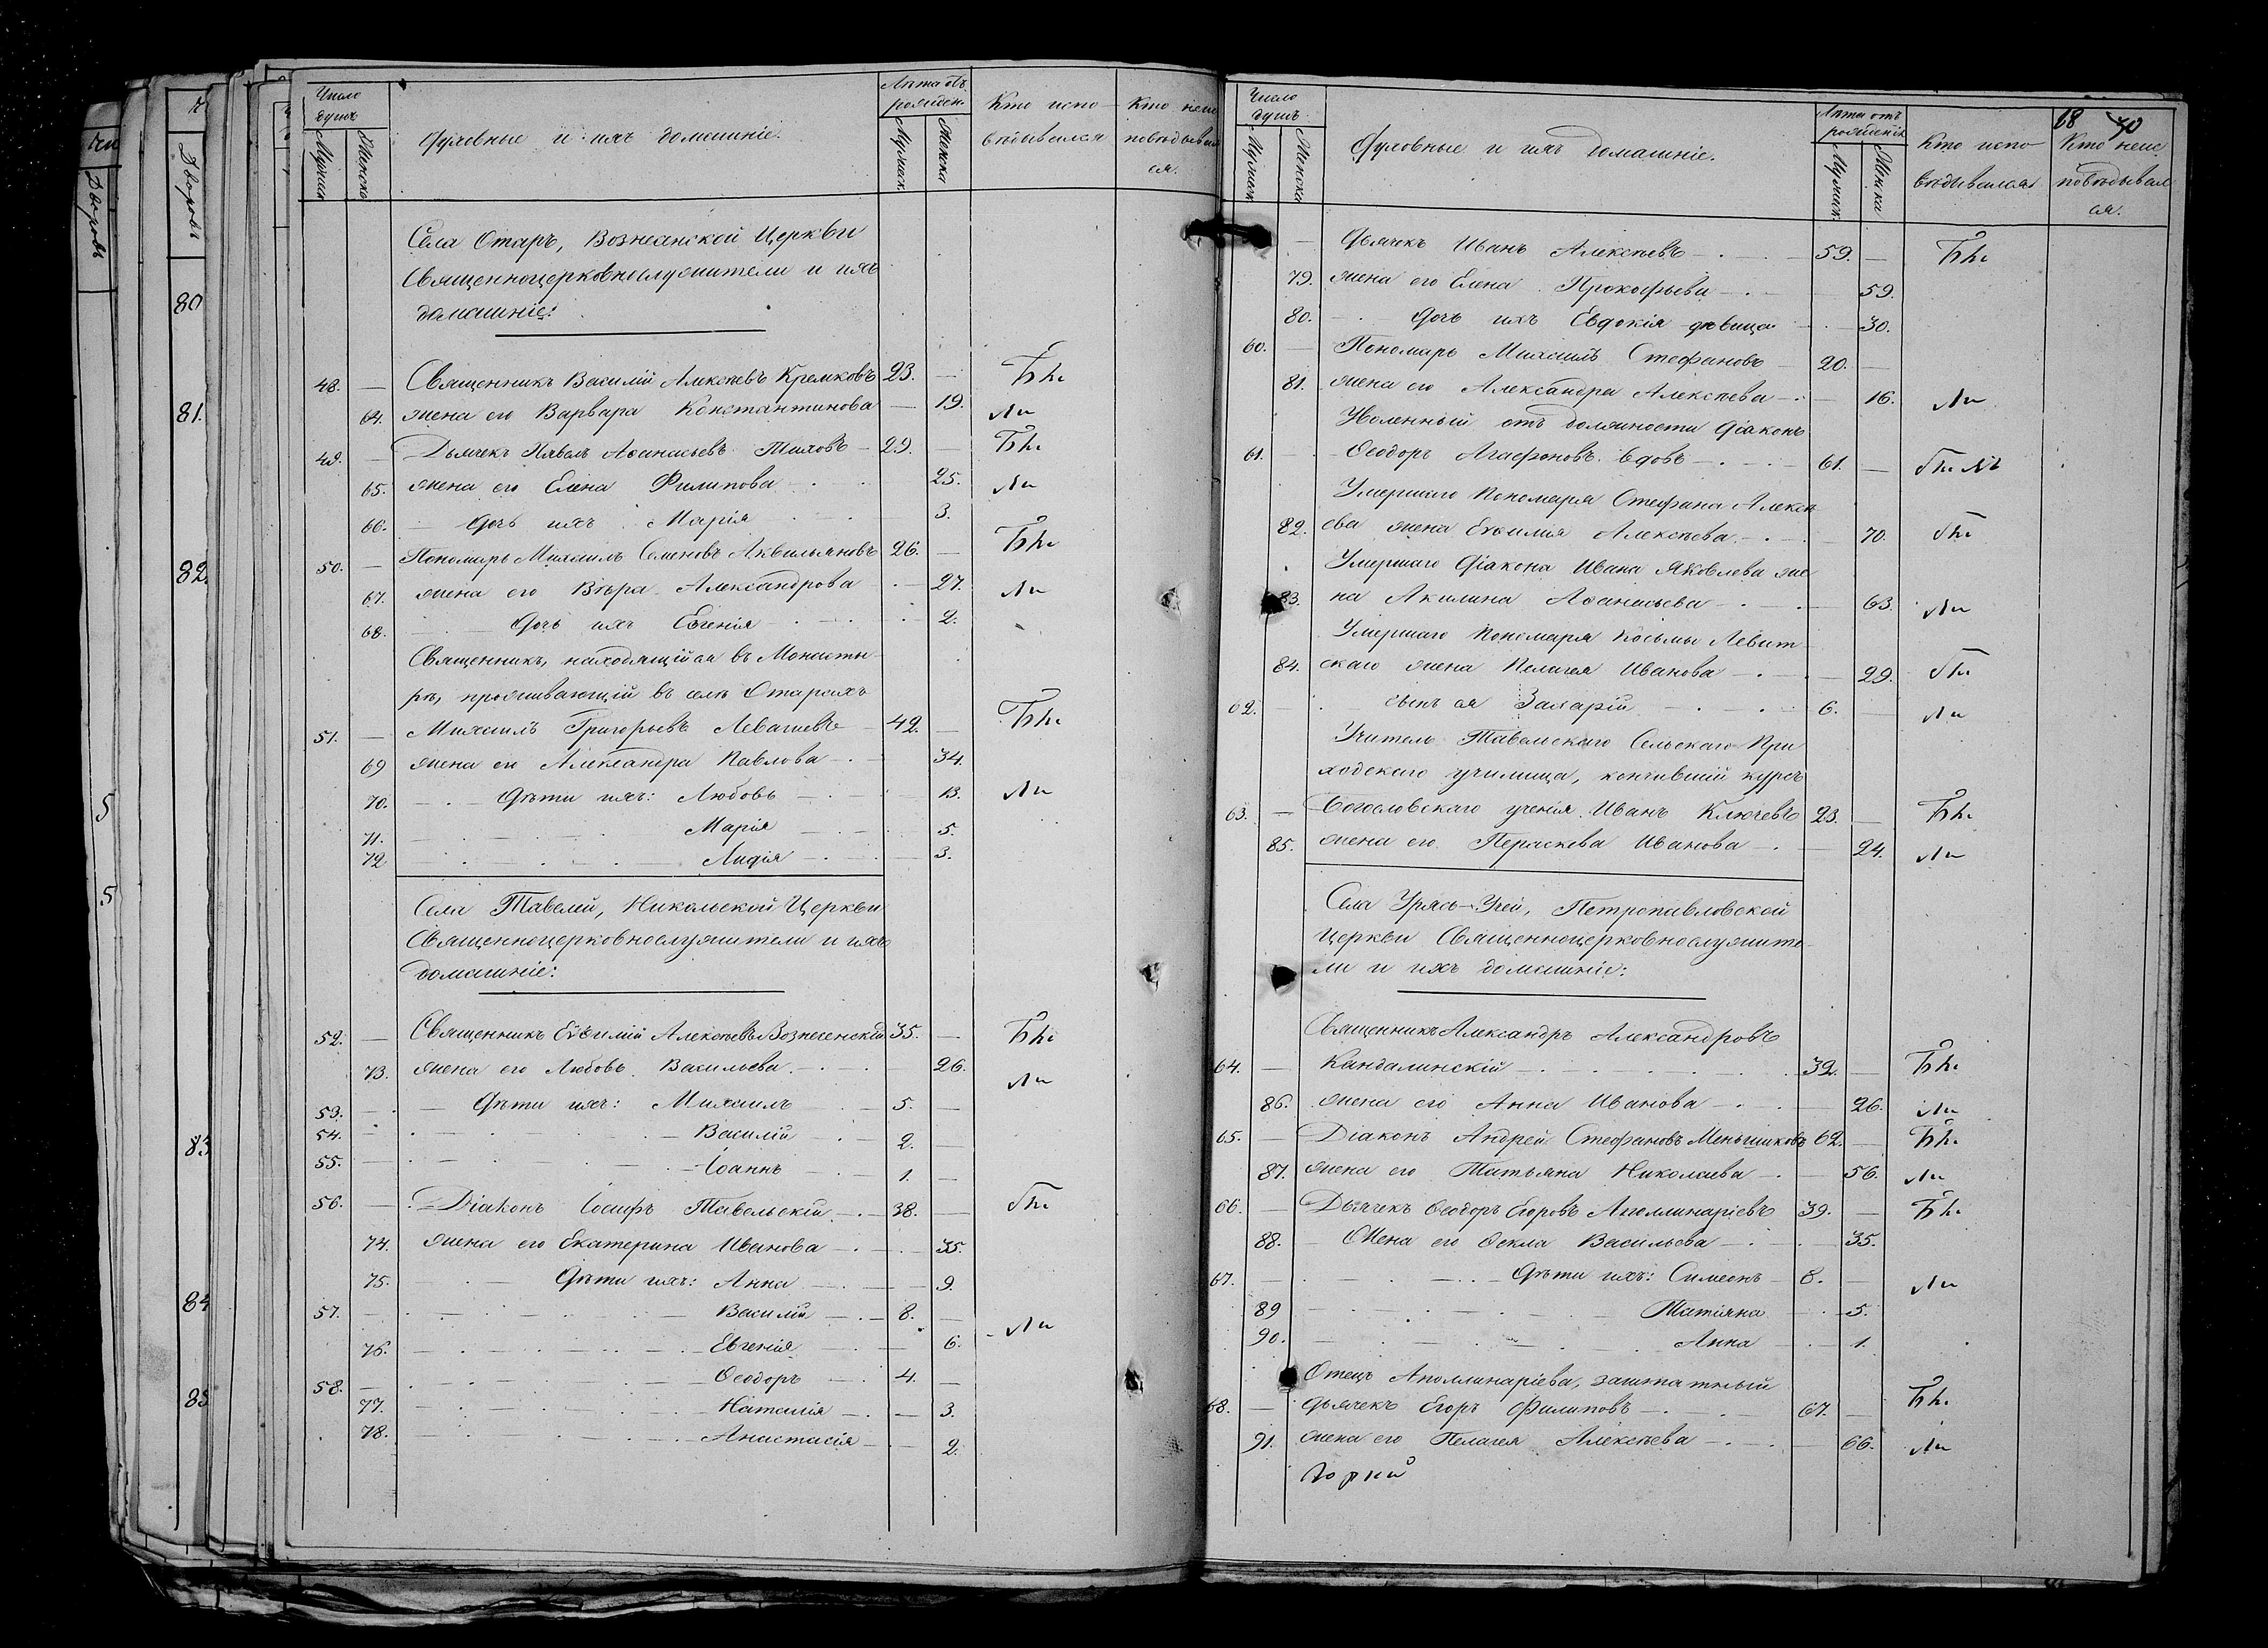 Число душъ
Мужска
Женска
Духовные и ихъ домашніе.
Лѣта отъ рожден.
Мужск.
Женска
Кто испо-
вѣдывался
Кто неис
повѣдывал
ся.
Села Отаръ, Вознесенской Церкви
Священноцерковнослужители и ихъ
домашніе:
48. — Священникъ Василій Алексѣевъ Кремковъ 23. —
64. жена его Варвара Константинова — 19.
49. — Дьячекъ Павелъ Аѳанасьевъ Тиховъ — 29. —
65. жена его Елена Филипова 25.
66. — дочь ихъ Марія 3.
50. — Пономарь Михаилъ Семеновъ Аквильяновъ 26. —
67. жена его Вѣра Александрова — 27.
68. — дочь ихъ Евгенія 2.
Священникъ, находящійся въ Монасты-
рѣ, проживающій въ селѣ Отарахъ
51. — Михаилъ Григорьевъ Левашевъ — 42. —
69 жена его Александра Павлова — 34.
70. — Дѣти ихъ: Любовь — 13.
71. Марія — 5.
72 Лидія — 3.
Села Тавелей, Никольской Церкви
Священноцерковнослужители и ихъ
домашніе:
52. — Священникъ Евѳимій Алексѣевъ Вознесенскій 35. —
73. жена его Любовь Васильева 26.
53. — Дѣти ихъ: Михаилъ — 5. —
54. — Василій — 2. —
55. — Іоаннъ — 1. —
56. — Діаконъ Іосифъ Тавельскій — 38. —
74. жена его Екатерина Иванова — 35.
75. — Дѣти ихъ: Анна — 9.
57. — Василій — 8. —
76. — Евгенія — 6.
58. — Ѳеодоръ — 4. —
77. — Наталія — 3.
78. — Анастасія — 2.
68 70
Число душъ
Мужск.
Женска
Духовные и ихъ домашніе.
Лѣта отъ рожденія
Мужск.
Женска
Кто испо
вѣдывался
Кто неис
повѣдывал
ся.
— Дьячекъ Иванъ Алексѣевъ — 59. —
79. жена его Елена Прокофьева — 59.
80. — дочь ихъ Евдокія дѣвица — 30.
60. — Пономарь Михаилъ Стефановъ 20. —
81. жена его Александра Алексѣева — 16.
Уволенный отъ должности діаконъ
61. — Ѳеодоръ Агафоновъ вдовъ — 61. —
Умершаго Пономаря Стефана Алексѣ
82. ева жена Евѳимія Алексѣева — 70.
Умершаго діакона Ивана Яковлева же
83. на Акилина Аѳанасьева — 63.
Умершаго Пономаря Косьмы Левит
84. скаго жена Пелагея Иванова — 29.
62. — сынъ ея Захарій — 6. —
Учитель Тавельскаго Сельскаго При
ходскаго училища, кончившій курсъ
63. — Богословскаго ученія Иванъ Ключевъ 23. —
85. жена его Параскева Иванова — 24.
Села Урясь-Учей, Петропавловской
Церкви Священноцерковнослужите-
ли и ихъ домашніе:
Священникъ Александръ Александровъ
64. — Кандалинскій — 32. —
86. жена его Анна Иванова — 26.
65. — Діаконъ Андрей Стефановъ Меньшиковъ 62. —
87. жена его Татьяна Николаева — 56.
66. — Дьячекъ Ѳеодоръ Егоровъ Аполлинаріевъ 39. —
88. — Жена его Ѳекла Васильева — 35.
67. — Дѣти ихъ: Симеонъ — 8. —
89 — Татіяна — 5.
90. — Анна — 1.
Отецъ Аполлинаріева, заштатный
68. — дьячекъ Егоръ Филиповъ — 67. —
91. жена его Пелагея Алексѣева — 66.
Дворовъ
Дворовъ
80
81.
82.
83
84
85
5
5